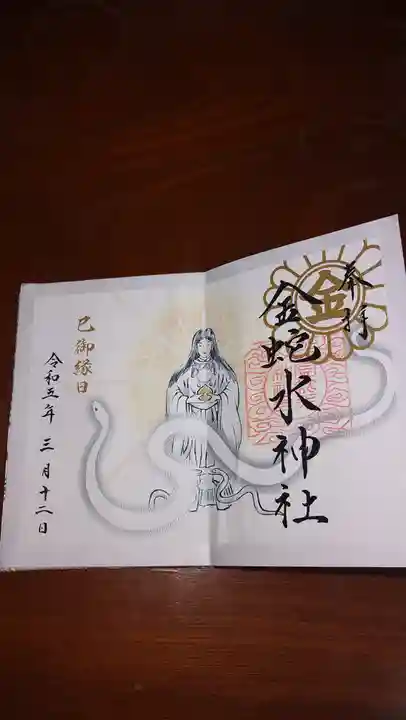 奉拝
金
金蛇水神社
巳御縁日
令和五年三月十二日